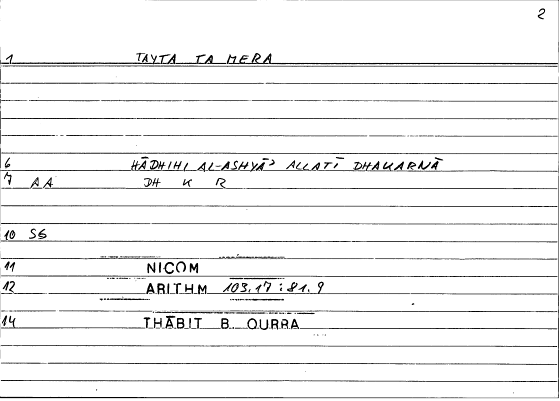 2
1 TAYTA TA MERA
6 HĀDHIHI AL-ASHYĀʾ ALLATĪ DHAKARNĀ
7 AA DH K R
10 SG
11 NICOM
12 ARITHM 103.17:81.9
14 THĀBIT B. QURRA